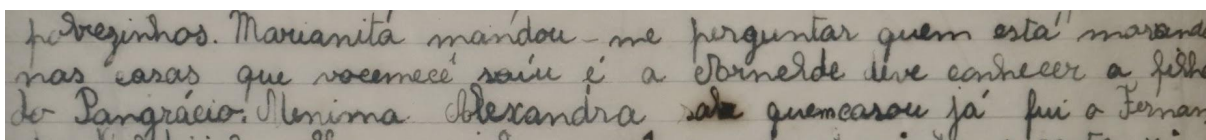 pobrezinhos. Marianita mandou-me perguntar quem está morand
nas casas que vocemecê saíu é a deve conhecer a filh
do Pangrácio. Menima Alexandra sabe quemcasou já fui o Fernan